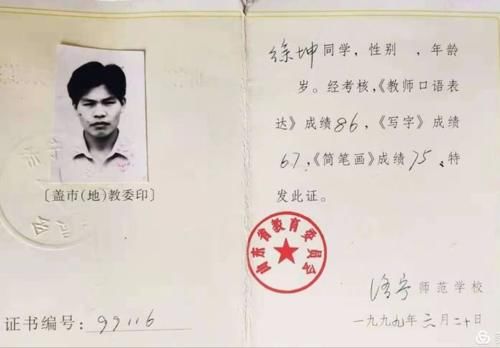 [盖市(地)教委印]
证书编号: 99116
徐坤同学,性别 ,年龄
岁。经考核,《教师口语表
达》成绩86,《写字》成绩
67,《简笔画》成绩75,特
发此证。
山东省教育委员会
师范学校
一九九九年 月二十日